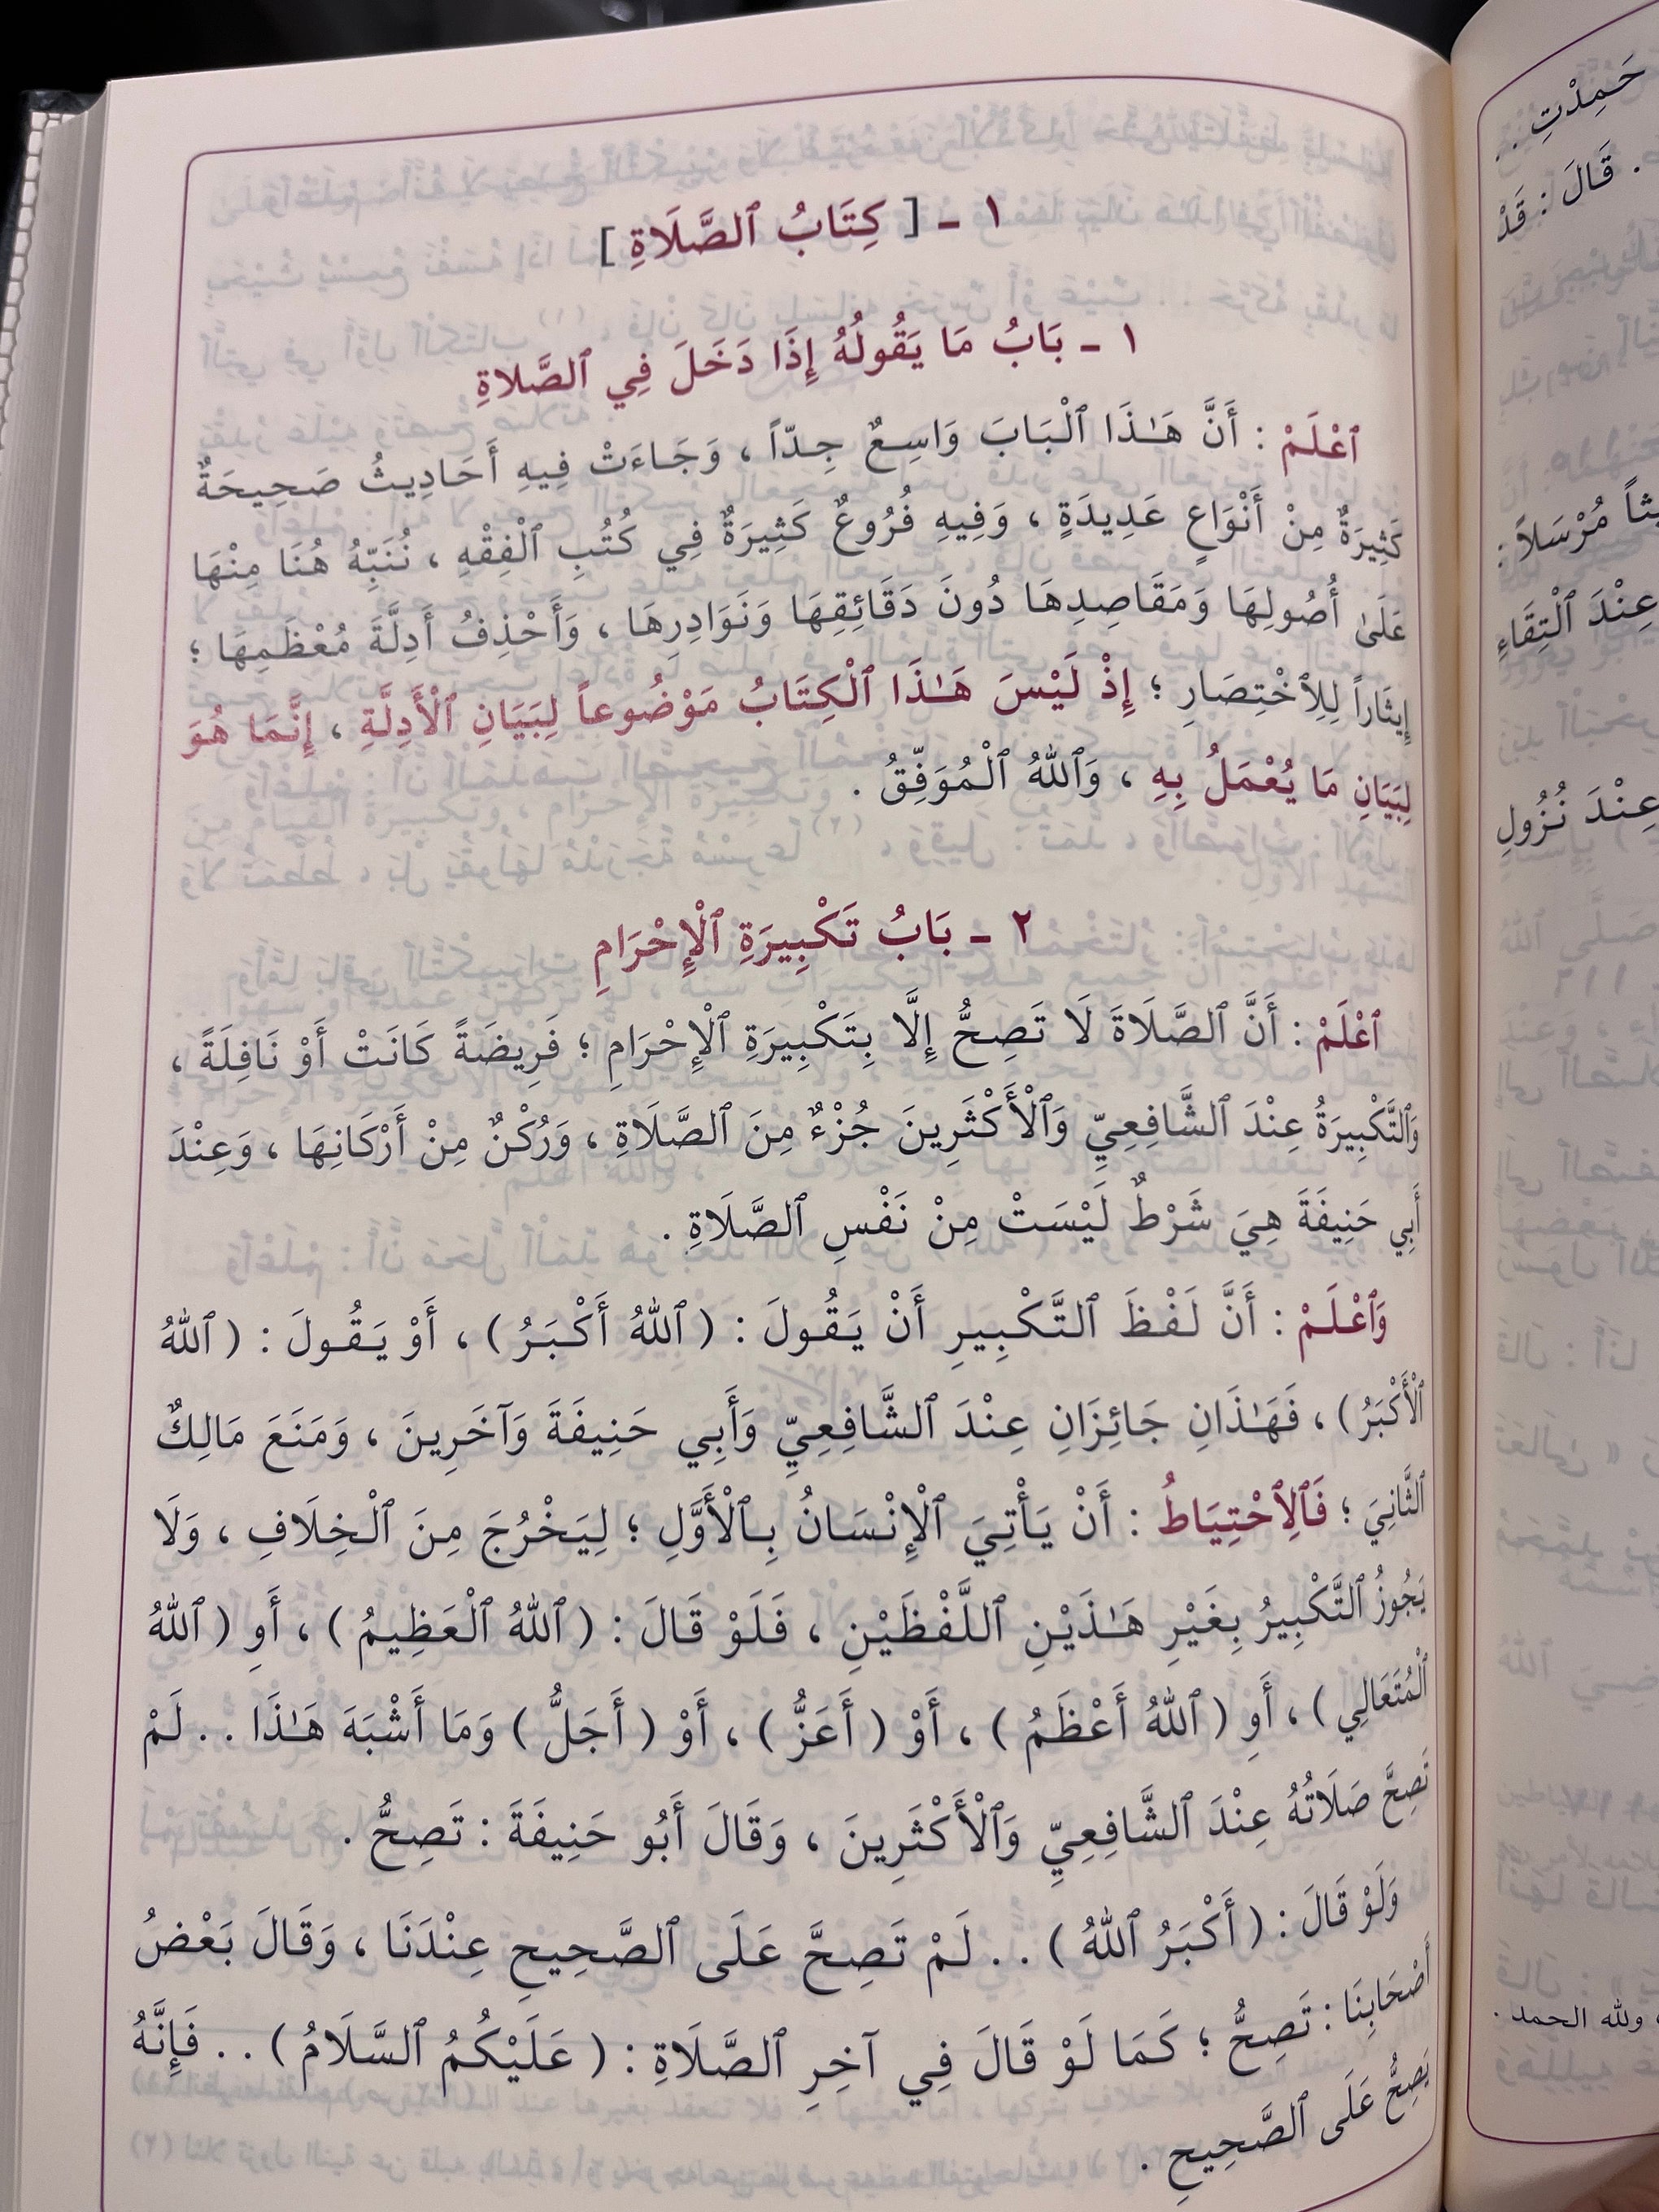 ١ ـ [ كِتَابُ ٱلصَّلَاةِ ]
١ ـ بَابُ مَا يَقُولُهُ إِذَا دَخَلَ فِي ٱلصَّلاةِ
ٱعْلَمْ : أَنَّ هَـٰذَا ٱلْبَابَ وَاسِعٌ جِدّاً ، وَجَاءَتْ فِيهِ أَحَادِيثُ صَحِيحَةٌ
كَثِيرَةٌ مِنْ أَنْوَاعٍ عَدِيدَةٍ ، وَفِيهِ فُرُوعٌ كَثِيرَةٌ فِي كُتُبِ ٱلْفِقْهِ ، نُنَبِّهُ هُنَا مِنْهَا
عَلَىٰ أُصُولِهَا وَمَقَاصِدِهَا دُونَ دَقَائِقِهَا وَنَوَادِرِهَا ، وَأَحْذِفُ أَدِلَّةَ مُعْظَمِهَا ؛
إِيثَاراً لِلِٱخْتِصَارِ ؛ إِذْ لَيْسَ هَـٰذَا ٱلْكِتَابُ مَوْضُوعاً لِبَيَانِ ٱلْأَدِلَّةِ ، إِنَّمَا هُوَ
لِبَيَانِ مَا يُعْمَلُ بِهِ ، وَٱللهُ ٱلْمُوَفِّقُ .
٢ ـ بَابُ تَكْبِيرَةِ ٱلْإِحْرَامِ
ٱعْلَمْ : أَنَّ ٱلصَّلَاةَ لَا تَصِحُّ إِلَّا بِتَكْبِيرَةِ ٱلْإِحْرَامِ ؛ فَرِيضَةً كَانَتْ أَوْ نَافِلَةً ،
وَٱلتَّكْبِيرَةُ عِنْدَ ٱلشَّافِعِيِّ وَٱلْأَكْثَرِينَ جُزْءٌ مِنَ ٱلصَّلَاةِ ، وَرُكْنٌ مِنْ أَرْكَانِهَا ، وَعِنْدَ
أَبِي حَنِيفَةَ هِيَ شَرْطٌ لَيْسَتْ مِنْ نَفْسِ ٱلصَّلَاةِ .
وَٱعْلَمْ : أَنَّ لَفْظَ ٱلتَّكْبِيرِ أَنْ يَقُولَ : ( ٱللهُ أَكْبَرُ ) ، أَوْ يَقُولَ : ( ٱللهُ
ٱلْأَكْبَرُ ) ، فَهَـٰذَانِ جَائِزَانِ عِنْدَ ٱلشَّافِعِيِّ وَأَبِي حَنِيفَةَ وَآخَرِينَ ، وَمَنَعَ مَالِكٌ
ٱلثَّانِيَ ؛ فَٱلِٱحْتِيَاطُ : أَنْ يَأْتِيَ ٱلْإِنْسَانُ بِٱلْأَوَّلِ ؛ لِيَخْرُجَ مِنَ ٱلْخِلَافِ ، وَلَا
يَجُوزُ ٱلتَّكْبِيرُ بِغَيْرِ هَـٰذَيْنِ ٱللَّفْظَيْنِ ، فَلَوْ قَالَ : ( ٱللهُ ٱلْعَظِيمُ ) ، أَوِ ( ٱللهُ
ٱلْمُتَعَالِي ) ، أَوِ ( ٱللهُ أَعْظَمُ ) ، أَوْ ( أَعَزُّ ) ، أَوْ ( أَجَلُّ ) وَمَا أَشْبَهَ هَـٰذَا . . لَمْ
تَصِحَّ صَلَاتُهُ عِنْدَ ٱلشَّافِعِيِّ وَٱلْأَكْثَرِينَ ، وَقَالَ أَبُو حَنِيفَةَ : تَصِحُّ .
وَلَوْ قَالَ : ( أَكْبَرُ ٱللهُ ) . . لَمْ تَصِحَّ عَلَى ٱلصَّحِيحِ عِنْدَنَا ، وَقَالَ بَعْضُ
أَصْحَابِنَا : تَصِحُّ ؛ كَمَا لَوْ قَالَ فِي آخِرِ ٱلصَّلَاةِ : ( عَلَيْكُمُ ٱلسَّلَامُ ) . . فَإِنَّهُ
يَصِحُّ عَلَى ٱلصَّحِيحِ .
حَمِدْتِ . .
. قَالَ : قَدْ
مُرْسَلاً :
عِنْدَ ٱلْتِقَاءِ
عِنْدَ نُزُولِ
، ولله الحمد .